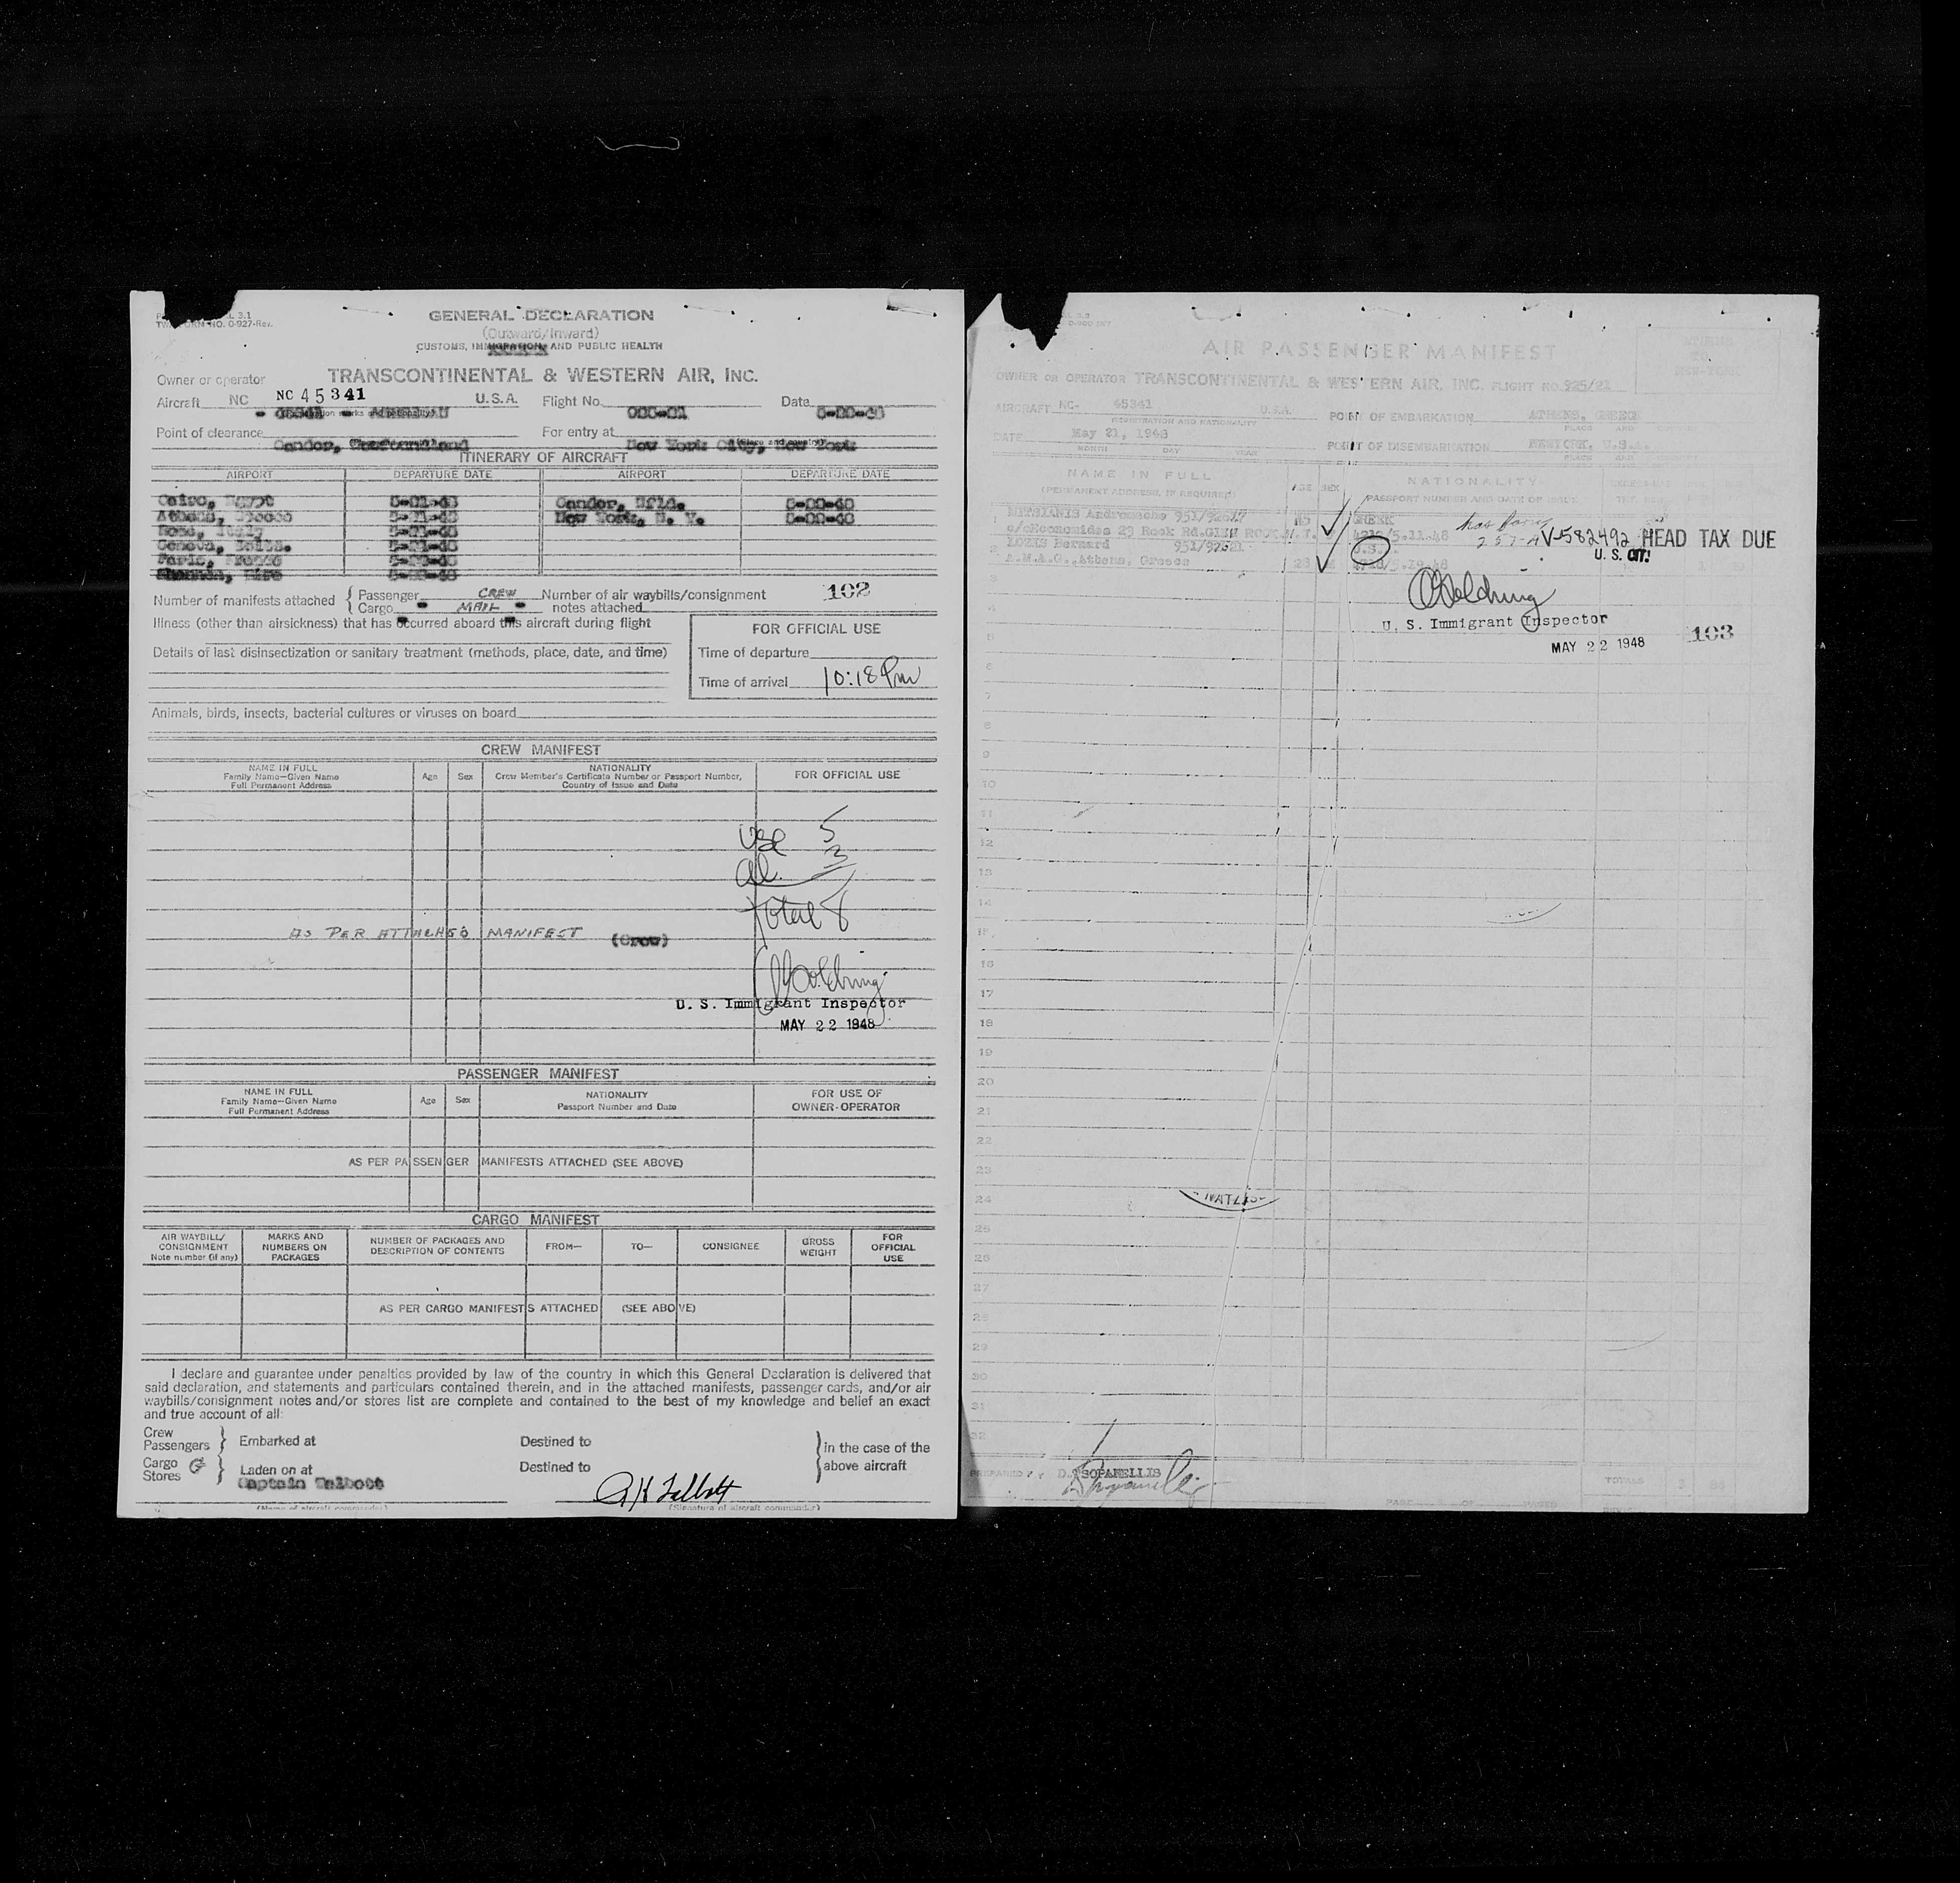 GENERAL DECLARATION
(Outward/Inward)
CUSTOMS, IMMIGRATION AND PUBLIC HEALTH
Owner or operator TRANSCONTINENTAL & WESTERN AIR, INC.
Aircraft NC NC 45341 U.S.A. Flight No. Date
Point of clearance Gander, For entry at New York City, New York
ITINERARY OF AIRCRAFT
AIRPORT DEPARTURE DATE AIRPORT DEPARTURE DATE
Cairo, Egypt 5-21-48 Gander, Nfld. 5-22-48
Athens, Greece 5-21-48 New York, N. Y. 5-22-48
Rome, Italy 5-21-48
Geneva, 5-21-48
Paris, France
Shannon, Eire
Number of manifests attached { Passenger CREW Number of air waybills/consignment 102
Cargo MAIL notes attached
Illness (other than airsickness) that has occurred aboard this aircraft during flight
Details of last disinsectization or sanitary treatment (methods, place, date, and time)
FOR OFFICIAL USE
Time of departure
Time of arrival 10:18 Pm
Animals, birds, insects, bacterial cultures or viruses on board
CREW MANIFEST
NAME IN FULL
Family Name—Given Name
Full Permanent Address
Age Sex
NATIONALITY
Crew Member's Certificate Number or Passport Number,
Country of Issue and Date
FOR OFFICIAL USE
5
al. 3
Total 8
AS PER ATTACHED MANIFEST (Crew)
U. S. Immigrant Inspector
MAY 22 1948
PASSENGER MANIFEST
NAME IN FULL
Family Name—Given Name
Full Permanent Address
Age Sex
NATIONALITY
Passport Number and Date
FOR USE OF
OWNER-OPERATOR
AS PER PASSENGER MANIFESTS ATTACHED (SEE ABOVE)
CARGO MANIFEST
AIR WAYBILL/
CONSIGNMENT
Note number (if any)
MARKS AND
NUMBERS ON
PACKAGES
NUMBER OF PACKAGES AND
DESCRIPTION OF CONTENTS
FROM—
TO—
CONSIGNEE
GROSS
WEIGHT
FOR
OFFICIAL
USE
AS PER CARGO MANIFESTS ATTACHED (SEE ABOVE)
I declare and guarantee under penalties provided by law of the country in which this General Declaration is delivered that
said declaration, and statements and particulars contained therein, and in the attached manifests, passenger cards, and/or air
waybills/consignment notes and/or stores list are complete and contained to the best of my knowledge and belief an exact
and true account of all:
Crew
Passengers } Embarked at Destined to
Cargo
Stores } Laden on at Destined to
} in the case of the
above aircraft
Captain Talbott
(Name of aircraft commander) (Signature of aircraft commander)
AIR PASSENGER MANIFEST
ATHENS
TO
NEW-YORK
OWNER OR OPERATOR TRANSCONTINENTAL & WESTERN AIR, INC. FLIGHT NO. 925/21
AIRCRAFT NC- 45341 U.S.A. POINT OF EMBARKATION ATHENS, GREECE
REGISTRATION AND NATIONALITY PLACE AND COUNTRY
DATE May 21, 1948 POINT OF DISEMBARKATION NEWYORK, U.S.A.
MONTH DAY YEAR PLACE AND
NAME IN FULL
(PERMANENT ADDRESS, IF REQUIRED)
AGE SEX
NATIONALITY
PASSPORT NUMBER AND DATE OF ISSUE
1 Andromache 951/92617 GREEK
c/oEconomides 23 Rock Rd.GLEN ROCK 5.11.48 V-582492 HEAD TAX DUE
2 Bernard U.S. U. S. CIT!
A.M.A.G.,Athens, Greece 28 M
U. S. Immigrant Inspector
MAY 22 1948 103
3
4
5
6
7
8
9
10
11
12
13
14
15
16
17
18
19
20
21
22
23
24
25
26
27
28
29
30
31
32
PREPARED BY D.TSOPANELLIS
TOTALS
PAGE OF PAGES